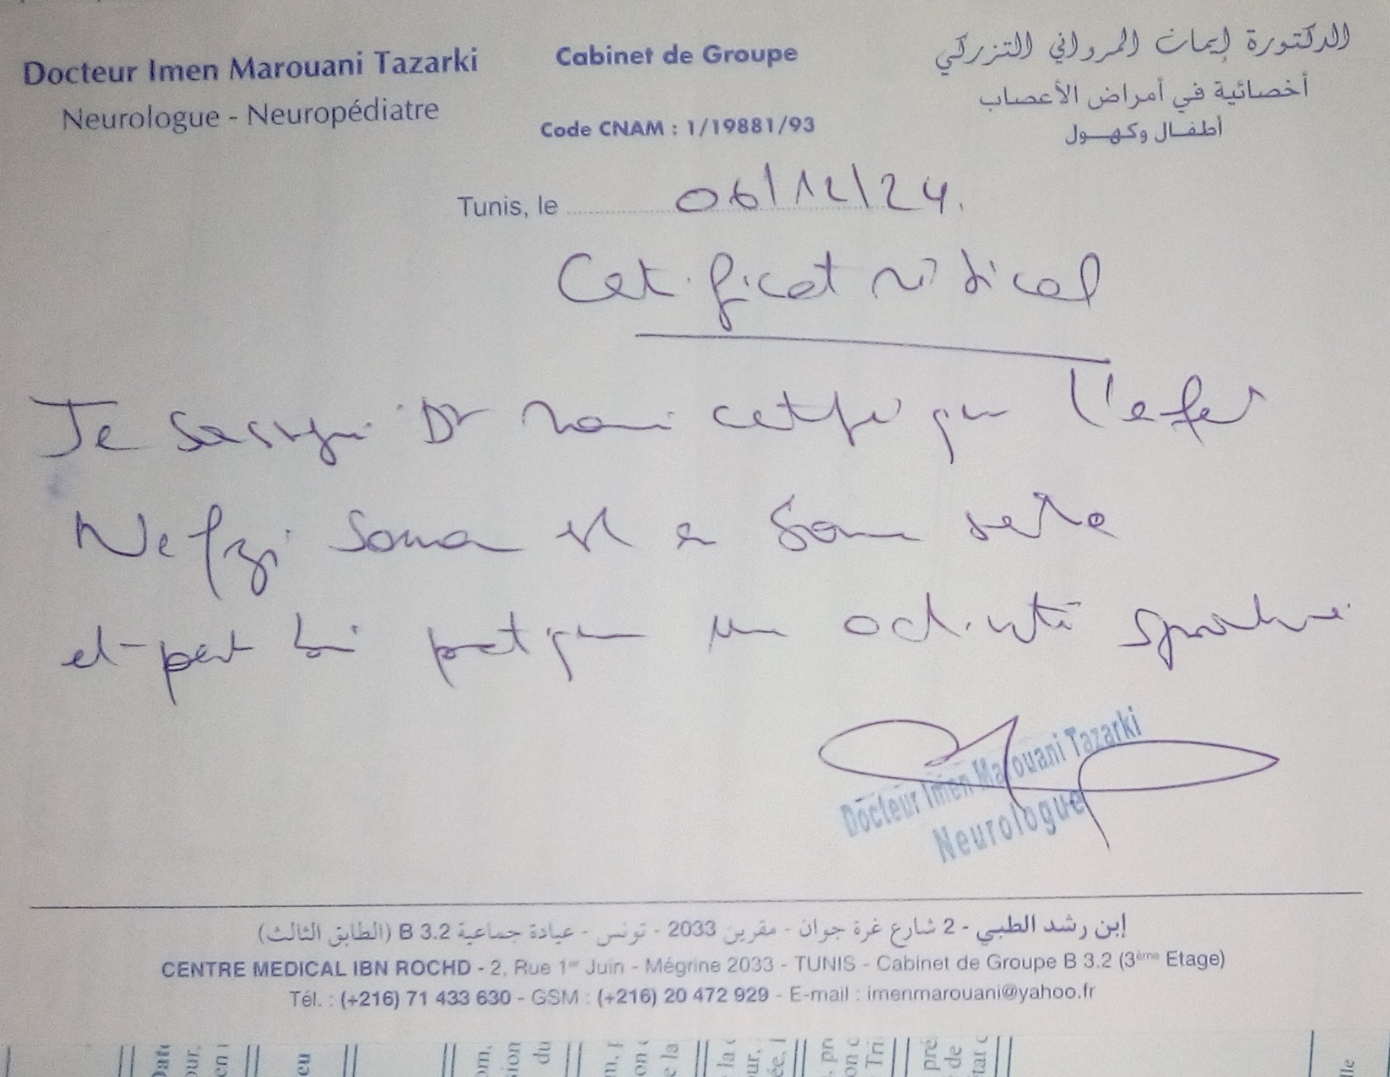 Docteur Imen Marouani Tazarki
Neurologue - Neuropédiatre
Cabinet de Groupe
Code CNAM : 1/19881/93
الدكتورة إيمان المرواني التزركي
أخصائية في أمراض الأعصاب
أطفال وكهول
Tunis, le 06/12/24.
Certificat médical
Je soussigné Dr certifie que l'enfant
Nefzi est en bonne santé
et peut pratiquer une activité sportive
Docteur Imen Marouani Tazarki
Neurologue
إبن رشد الطبي - 2 شارع غرة جوان - مقرين 2033 - تونس - عيادة جماعية B 3.2 (الطابق الثالث)
CENTRE MEDICAL IBN ROCHD - 2, Rue 1er Juin - Mégrine 2033 - TUNIS - Cabinet de Groupe B 3.2 (3ème Etage)
Tél. : (+216) 71 433 630 - GSM : (+216) 20 472 929 - E-mail : imenmarouani@yahoo.fr